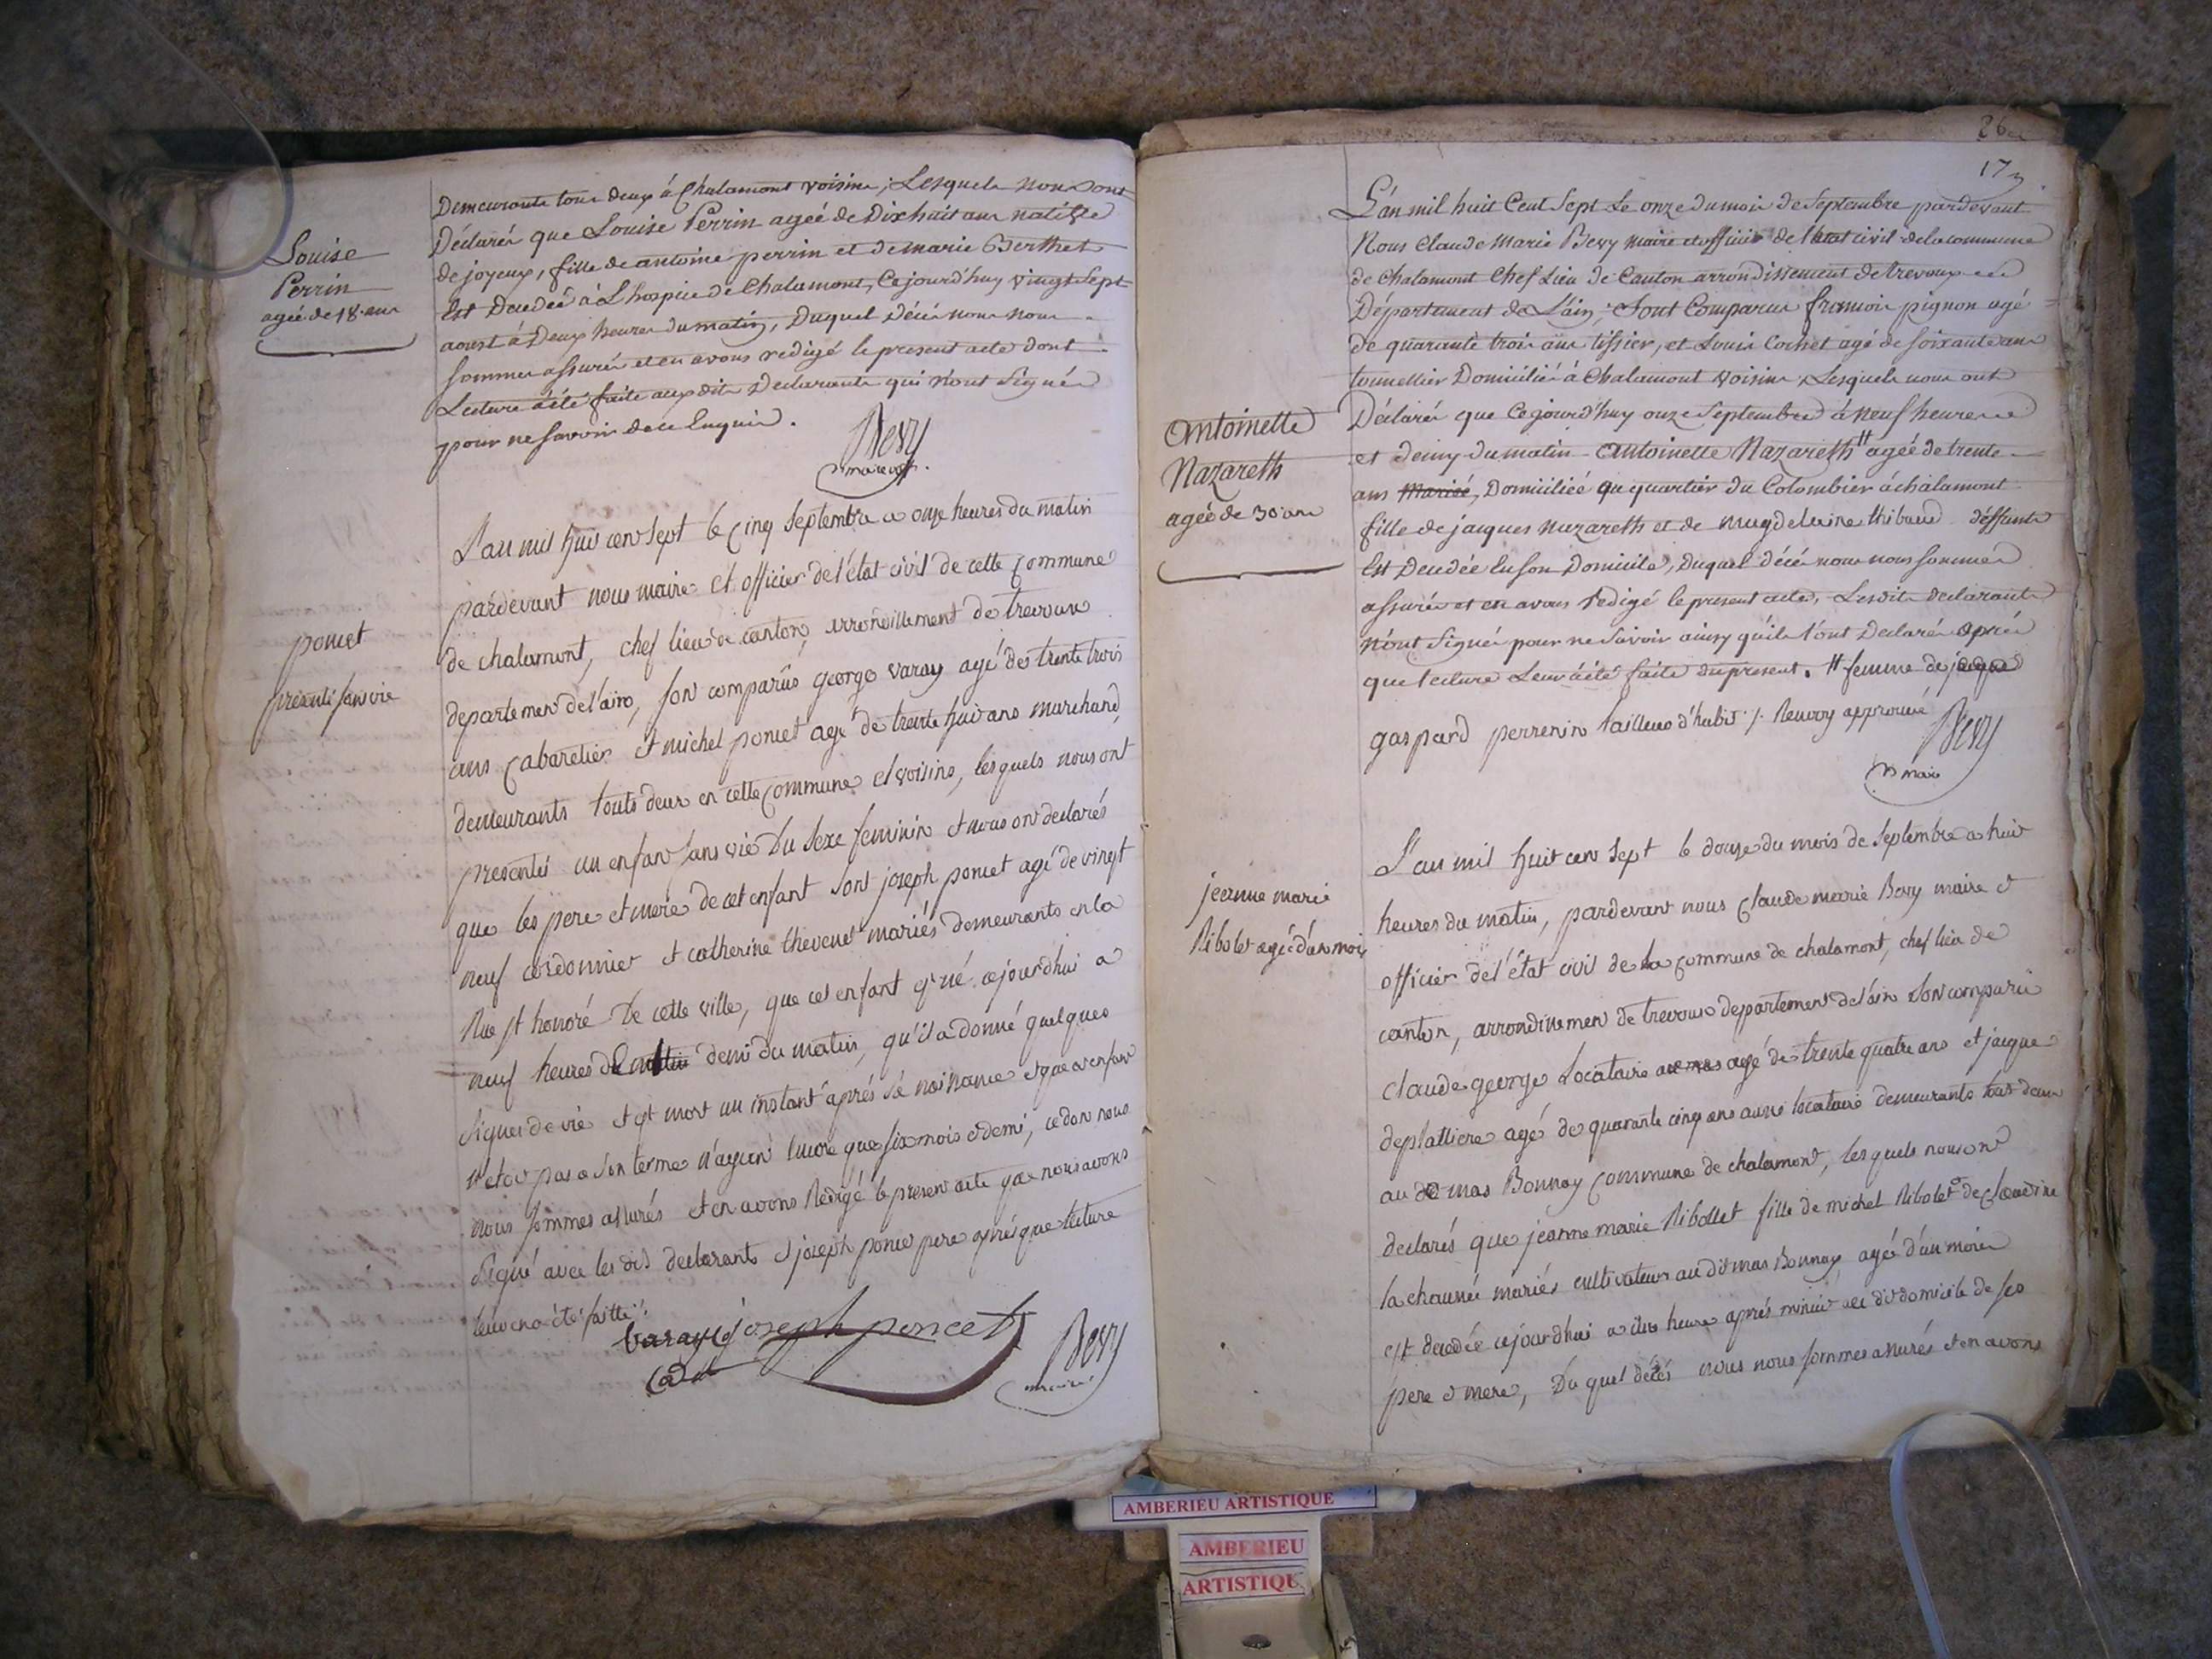 Louise
Perrin
agée de 18 ans
Demeurants tous deux à Chalamont voisins, Lesquels nous ont
Déclarés que Louise Perrin ageé de Dixhuit ans native
de joyeux, fille de antoine perrin et de marie Berthet
Est Decedeé à L'hospice de Chalamont, Cejourd'huy vingt Sept
aoust à Deux heures du matin, Duquel Décés nous nous
sommes assurés et en avons redigé le present acte dont
Lecture a été faite auxdits Declarants qui n'ont Signés
pour ne savoir de ce Enquis.
Bevy
maire
poncet
présenté sans vie
L'an mil huit cent sept le cinq septembre a onze heures du matin
pardevant nous maire et officier de l'état civil de cette commune
de chalamont, chef lieu de canton, arrondissement de trevoux
departement de l'ain, son comparus george varay agé de trente trois
ans cabaretier et michel poncet agé de trente huit ans marchand
demeurants touts deux en cette commune et voisins, lesquels nous ont
presentés un enfant sans vie du sexe feminin et nous ont declarés
que les pere et mere de cet enfant sont joseph poncet agé de vingt
neuf cordonnier et catherine thevenet mariés demeurants en la
Rue st honoré de cette ville, que cet enfant est né cejourdhui a
neuf heures demi du matin, qu'il a donné quelques
signes de vie et est mort un instant après sa naissance et que cet enfant
n'etoit pas a son terme n'ayant encore que six mois et demi, ce dont nous
nous sommes assurés et en avons Redigé le present acte que nous avons
signé avec les dits declarants et joseph poncet pere après que lecture
leur en a été faitte.
Varay joseph poncet
Bevy
maire
26
17
Antoinette
Nazareth
ageé de 30 ans
L'an mil huit Cent Sept Le onze du mois de Septembre pardevant
Nous Claude Marie Bevy maire et officier de l'état civil de la commune
de Chalamont Chef Lieu de Canton arrondissement de trevoux
Département de L'ain, Sont Comparus francois pignon agé
de quarante trois ans tissier, et Louis Cornet agé de soixante ans
tonnellier Domiciliés à Chalamont voisins, Lesquels nous ont
Déclarés que Cejourd'huy onze Septembre à neuf heures
et demy du matin antoinette Nazareth # ageé de trente
ans Mariée, Domiciliée au quartier du Colombier à chalamont
fille de jacques nazareth et de magdelaine thibaud deffunts
Est Decedée En son Domicile, Duquel décés nous nous sommes
assurés et en avons redigé le present acte, Lesdits declarants
n'ont Signés pour ne savoir ainsy qu'ils l'ont Declarés après
que lecture Leur a été faite du present. # femme de jacque
gaspard perrenin tailleur d'habit ./. Renvoy approuvé
Bevy
maire
jeanne marie
Ribolet agée d'un mois
L'an mil huit cent sept le douze du mois de septembre a huit
heures du matin, pardevant nous claude marie Bevy maire et
officier de l'état civil de la commune de chalamont, chef lieu de
canton, arrondissement de trevoux departement de l'ain son comparû
claude george Locataire agé de trente quatre ans et jacque
deplattiere agé de quarante cinq ans aussi locataire demeurants tout deux
au mas Bonnay commune de chalamont, les quels nous ont
declarés que jeanne marie Ribollet fille de michel Ribolet et de claudine
lachaunée mariés cultivateurs au dit mas Bonnay agée d'un mois
est decedée cejourdhui a une heure après minuit au dit domicile de ses
pere et mere, Du quel décès nous nous sommes assurés et en avons
AMBERIEU ARTISTIQUE
AMBERIEU
ARTISTIQU